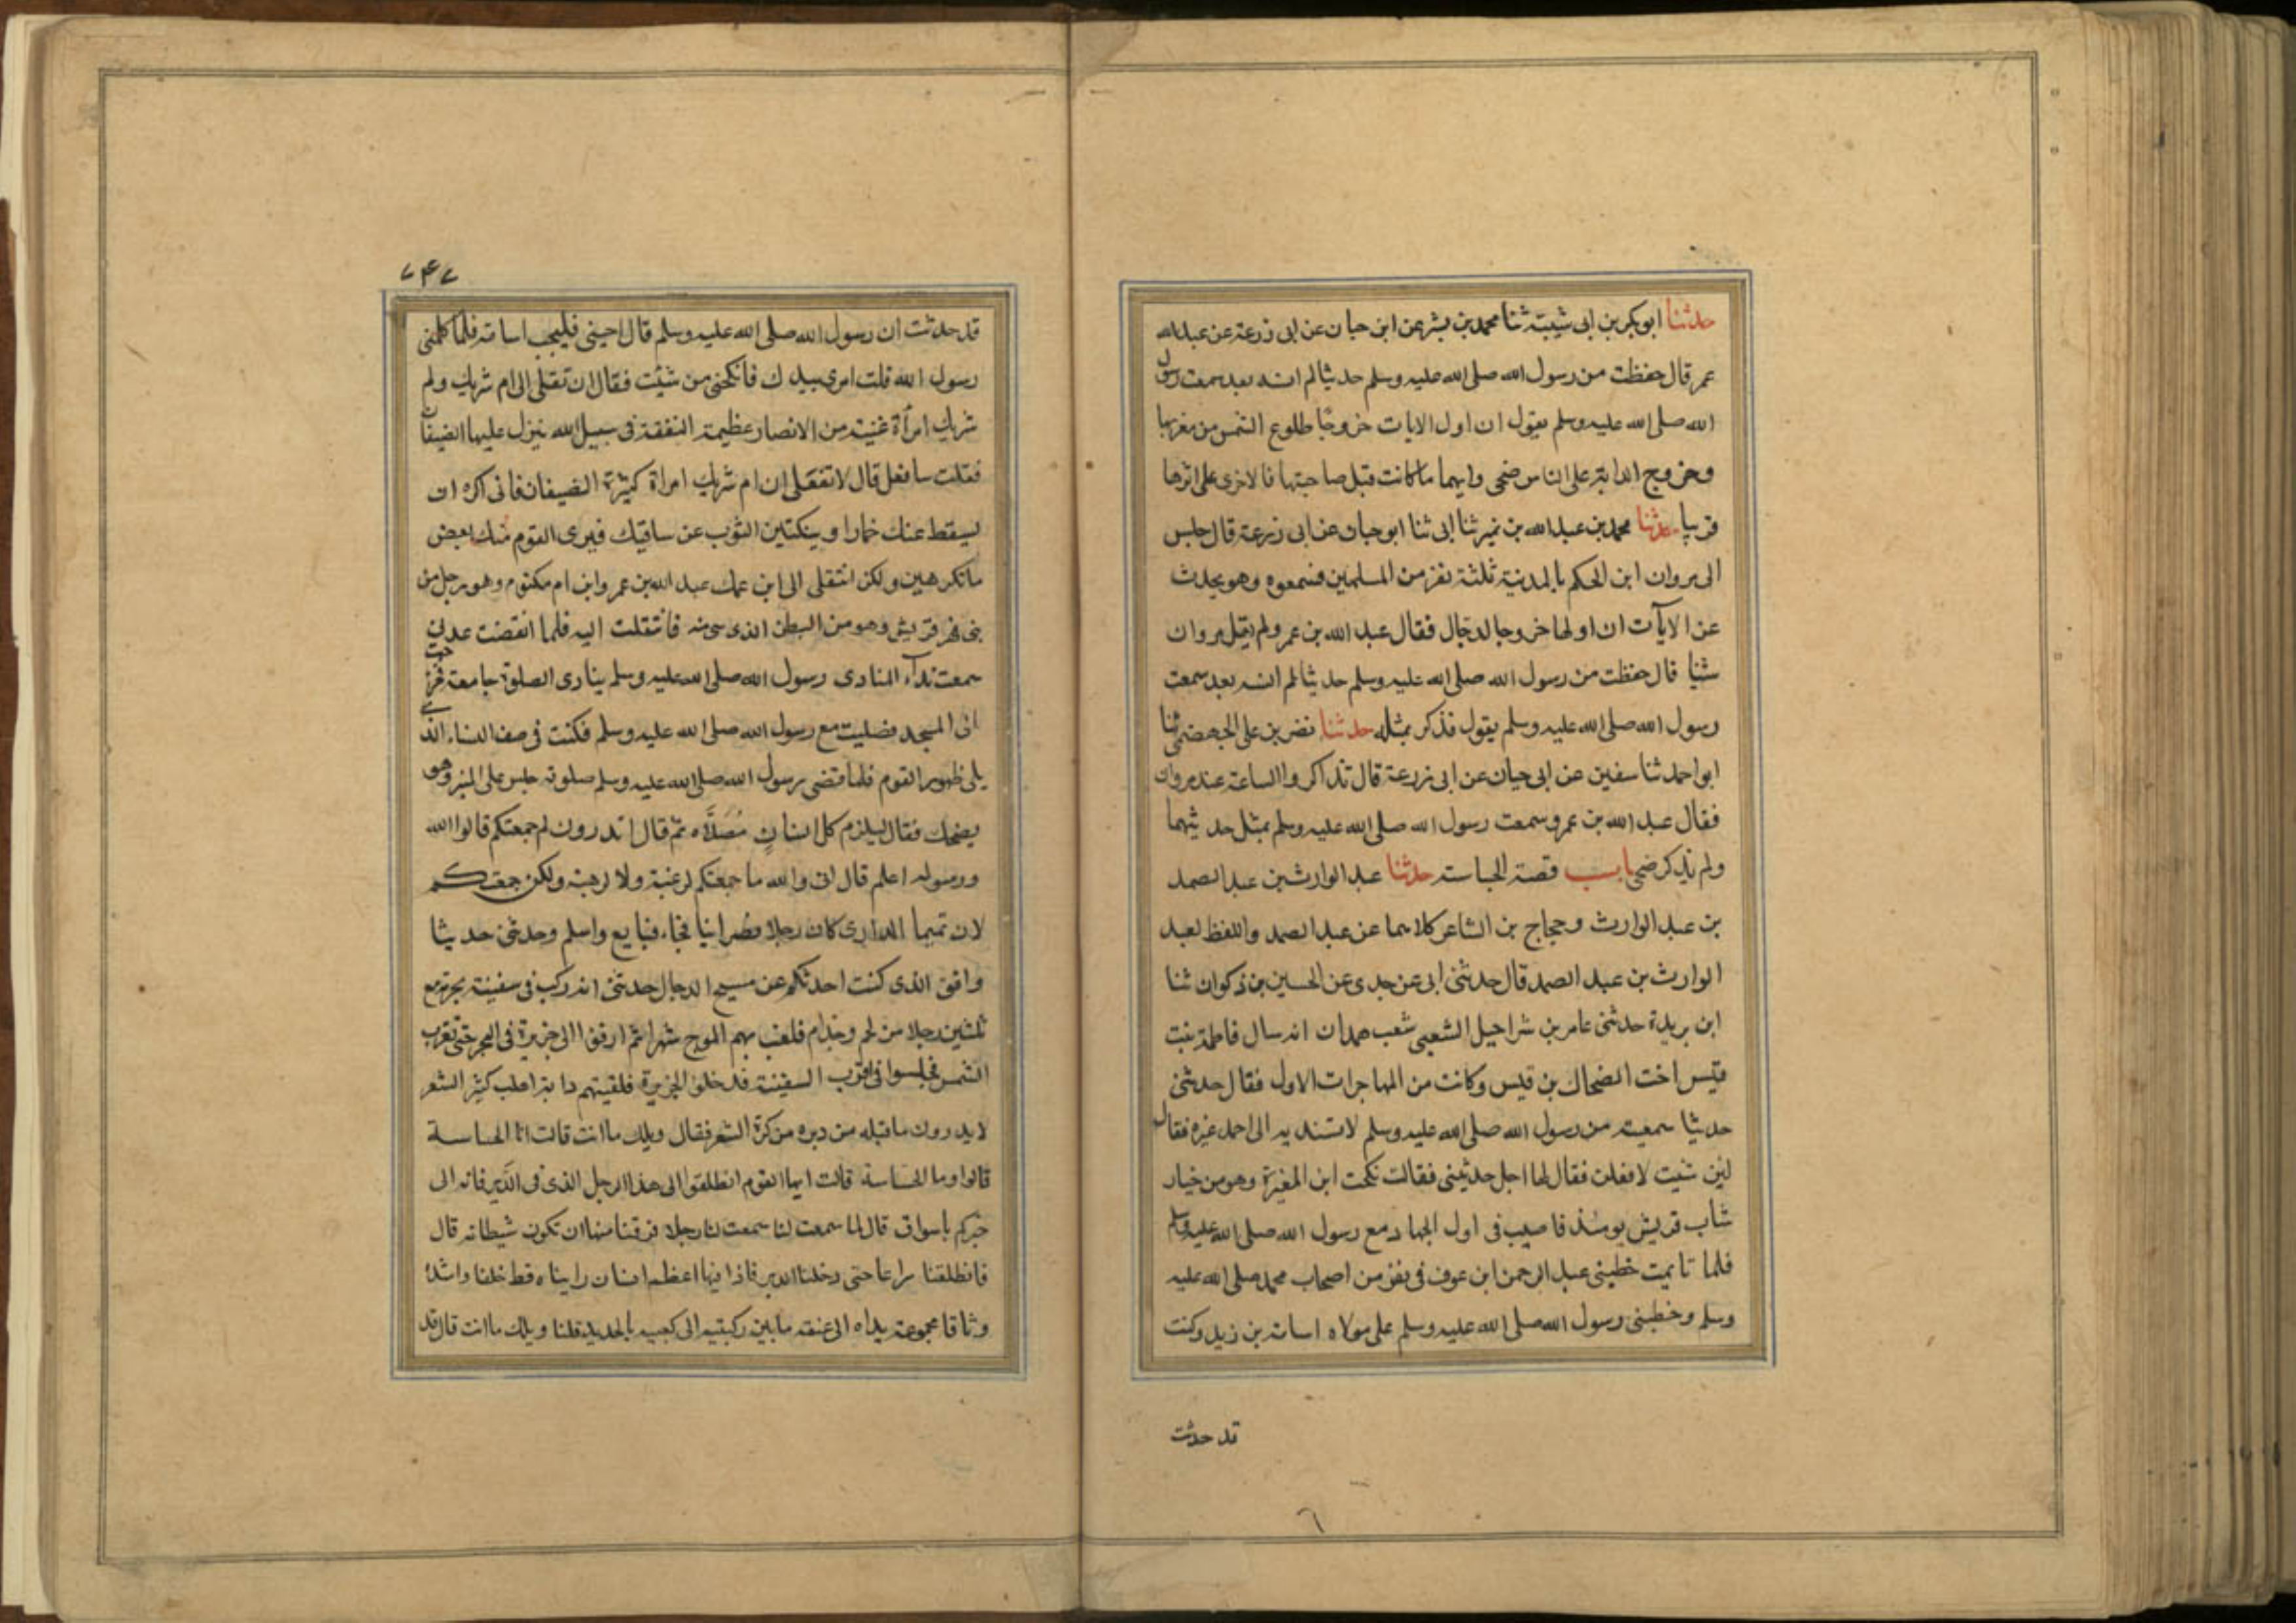 حدثنا ابو بكر بن ابى شيبة ثنا محمد بن بشر عن ابن حبان عن ابى زرعة عن عبد الله
عمر قال حفظت من رسول الله صلى الله عليه وسلم حديثا لم انسه بعد سمعت رسول
الله صلى الله عليه وسلم يقول ان اول الايات خروجًا طلوع الشمس من مغربها
وخروج الدابة على الناس ضحى وايهما ما كانت قبل صاحبتها فالاخرى على اثرها
قريبا حدثنا محمد بن عبد الله بن نمير ثنا ابى ثنا ابو حبان عن ابى زرعة قال جلس
الى مروان ابن الحكم بالمدينة ثلثة نفر من المسلمين فسمعوه وهو يحدث
عن الايآت ان اولها خروجا لدجال فقال عبد الله بن عمر ولم يقل مروان
شيئا قال حفظت من رسول الله صلى الله عليه وسلم حديثا لم انسه بعد سمعت
رسول الله صلى الله عليه وسلم يقول فذكر بمثله حدثنا نضر بن على الجهضمى ثنا
ابو احمد ثنا سفين عن ابى حيان عن ابى زرعة قال تذاكروا الساعة عند مروان
فقال عبد الله بن عمرو سمعت رسول الله صلى الله عليه وسلم بمثل حديثهما
ولم يذكر ضحى باب قصة الجساسة حدثنا عبد الوارث بن عبد الصمد
بن عبد الوارث وحجاج بن الشاعر كلاهما عن عبد الصمد واللفظ لعبد
الوارث بن عبد الصمد قال حدثنى ابى عن جدى عن الحسين بن ذكوان ثنا
ابن بريدة حدثنى عامر بن شراحيل الشعبى شعب همدان انه سال فاطمة بنت
قيس اخت الضحاك بن قيس وكانت من المهاجرات الاول فقال حدثنى
حديثا سمعيته من رسول الله صلى الله عليه وسلم لا تسنديه الى احد غيره فقال
لئن شيت لافعلن فقال لها اجل حدثينى فقالت نكحت ابن المغيرة وهو من خيار
شاب قريش يومئذ فاصيب فى اول الجهاد مع رسول الله صلى الله عليه وسلم
فلما تايمت خطبنى عبد الرحمن ابن عوف فى نفر من اصحاب محمد صلى الله عليه
وسلم وخطبنى رسول الله صلى الله عليه وسلم على مولاه اسامة بن زيد وكنت
قد حدثت
٦
٧٤٧
قد حدثت ان رسول الله صلى الله عليه وسلم قال احبنى فليحب اسامة فلما كلمنى
رسول الله قلت امرى بيدك فانكحنى من شئت فقال ان تقلى الى ام شريك ولم
شريك امرأة غنية من الانصار عظيمة النفقة فى سبيل الله ينزل عليها الضيفان
فقلت سافعل قال لا تفعلى ان ام شريك امراة كثيرة الضيفان فانى اكره ان
يسقط عنك خمارا وينكتين الثوب عن ساقيك فيرى القوم منك بعض
ما تكرهين ولكن انتقلى الى ابن عمك عبد الله بن عمر وابن ام مكتوم وهو رجل من
بنى فهر قريش وهو من البطن الذى هى منه فانتقلت اليه فلما انقضت عدتى
سمعت ندآء المنادى رسول الله صلى الله عليه وسلم ينادى الصلوة جامعة فخرجت
الى المسجد فصليت مع رسول الله صلى الله عليه وسلم فكنت فى صف النساء الذى
يلى ظهور القوم فلما قضى رسول الله صلى الله عليه وسلم صلوته جلس على المنبر وهو
يضحك فقال ليلزم كل انسانٍ مُصَلَّاه ثم قال اتدرون لم جمعتكم قالوا الله
ورسوله اعلم قال انى والله ما جمعتكم لرغبة ولا لرهبة ولكن جمعتكم
لان تميما الدارى كان رجلا نصرانيا فجاء فبايع واسلم وحدثنى حديثا
وافق الذى كنت احدثكم عن مسيح الدجال حدثنى انه ركب فى سفينة بحرية مع
ثلثين رجلا من لخم وجذام فلعب بهم الموج شهرا ثم ارفوا الى جزيرة فى البحر حتى تغرب
الشمس فجلسوا فى اقرب السفينة فدخلوا الجزيرة فلقيتهم دابة اهلب كثير الشعر
لا يدرون ما قبله من دبره من كثرة الشعر فقال ويلك ما انت قالت انا الجساسة
قالوا وما الجساسة قالت ايها القوم انطلقوا الى هذا الرجل الذى فى الدَّير فانه الى
خبركم باسواق قال لما سمعت لنا سمعت لنا رجلا فرقنا منها ان تكون شيطانة قال
فانطلقنا سراعا حتى دخلنا الدير فاذا فيها اعظم انسان رايناه قط خلقا واشده
وثاقا مجموعة يداه الى عنقه ما بين ركبتيه الى كعبيه بالحديد قلنا ويلك ما انت قال قد